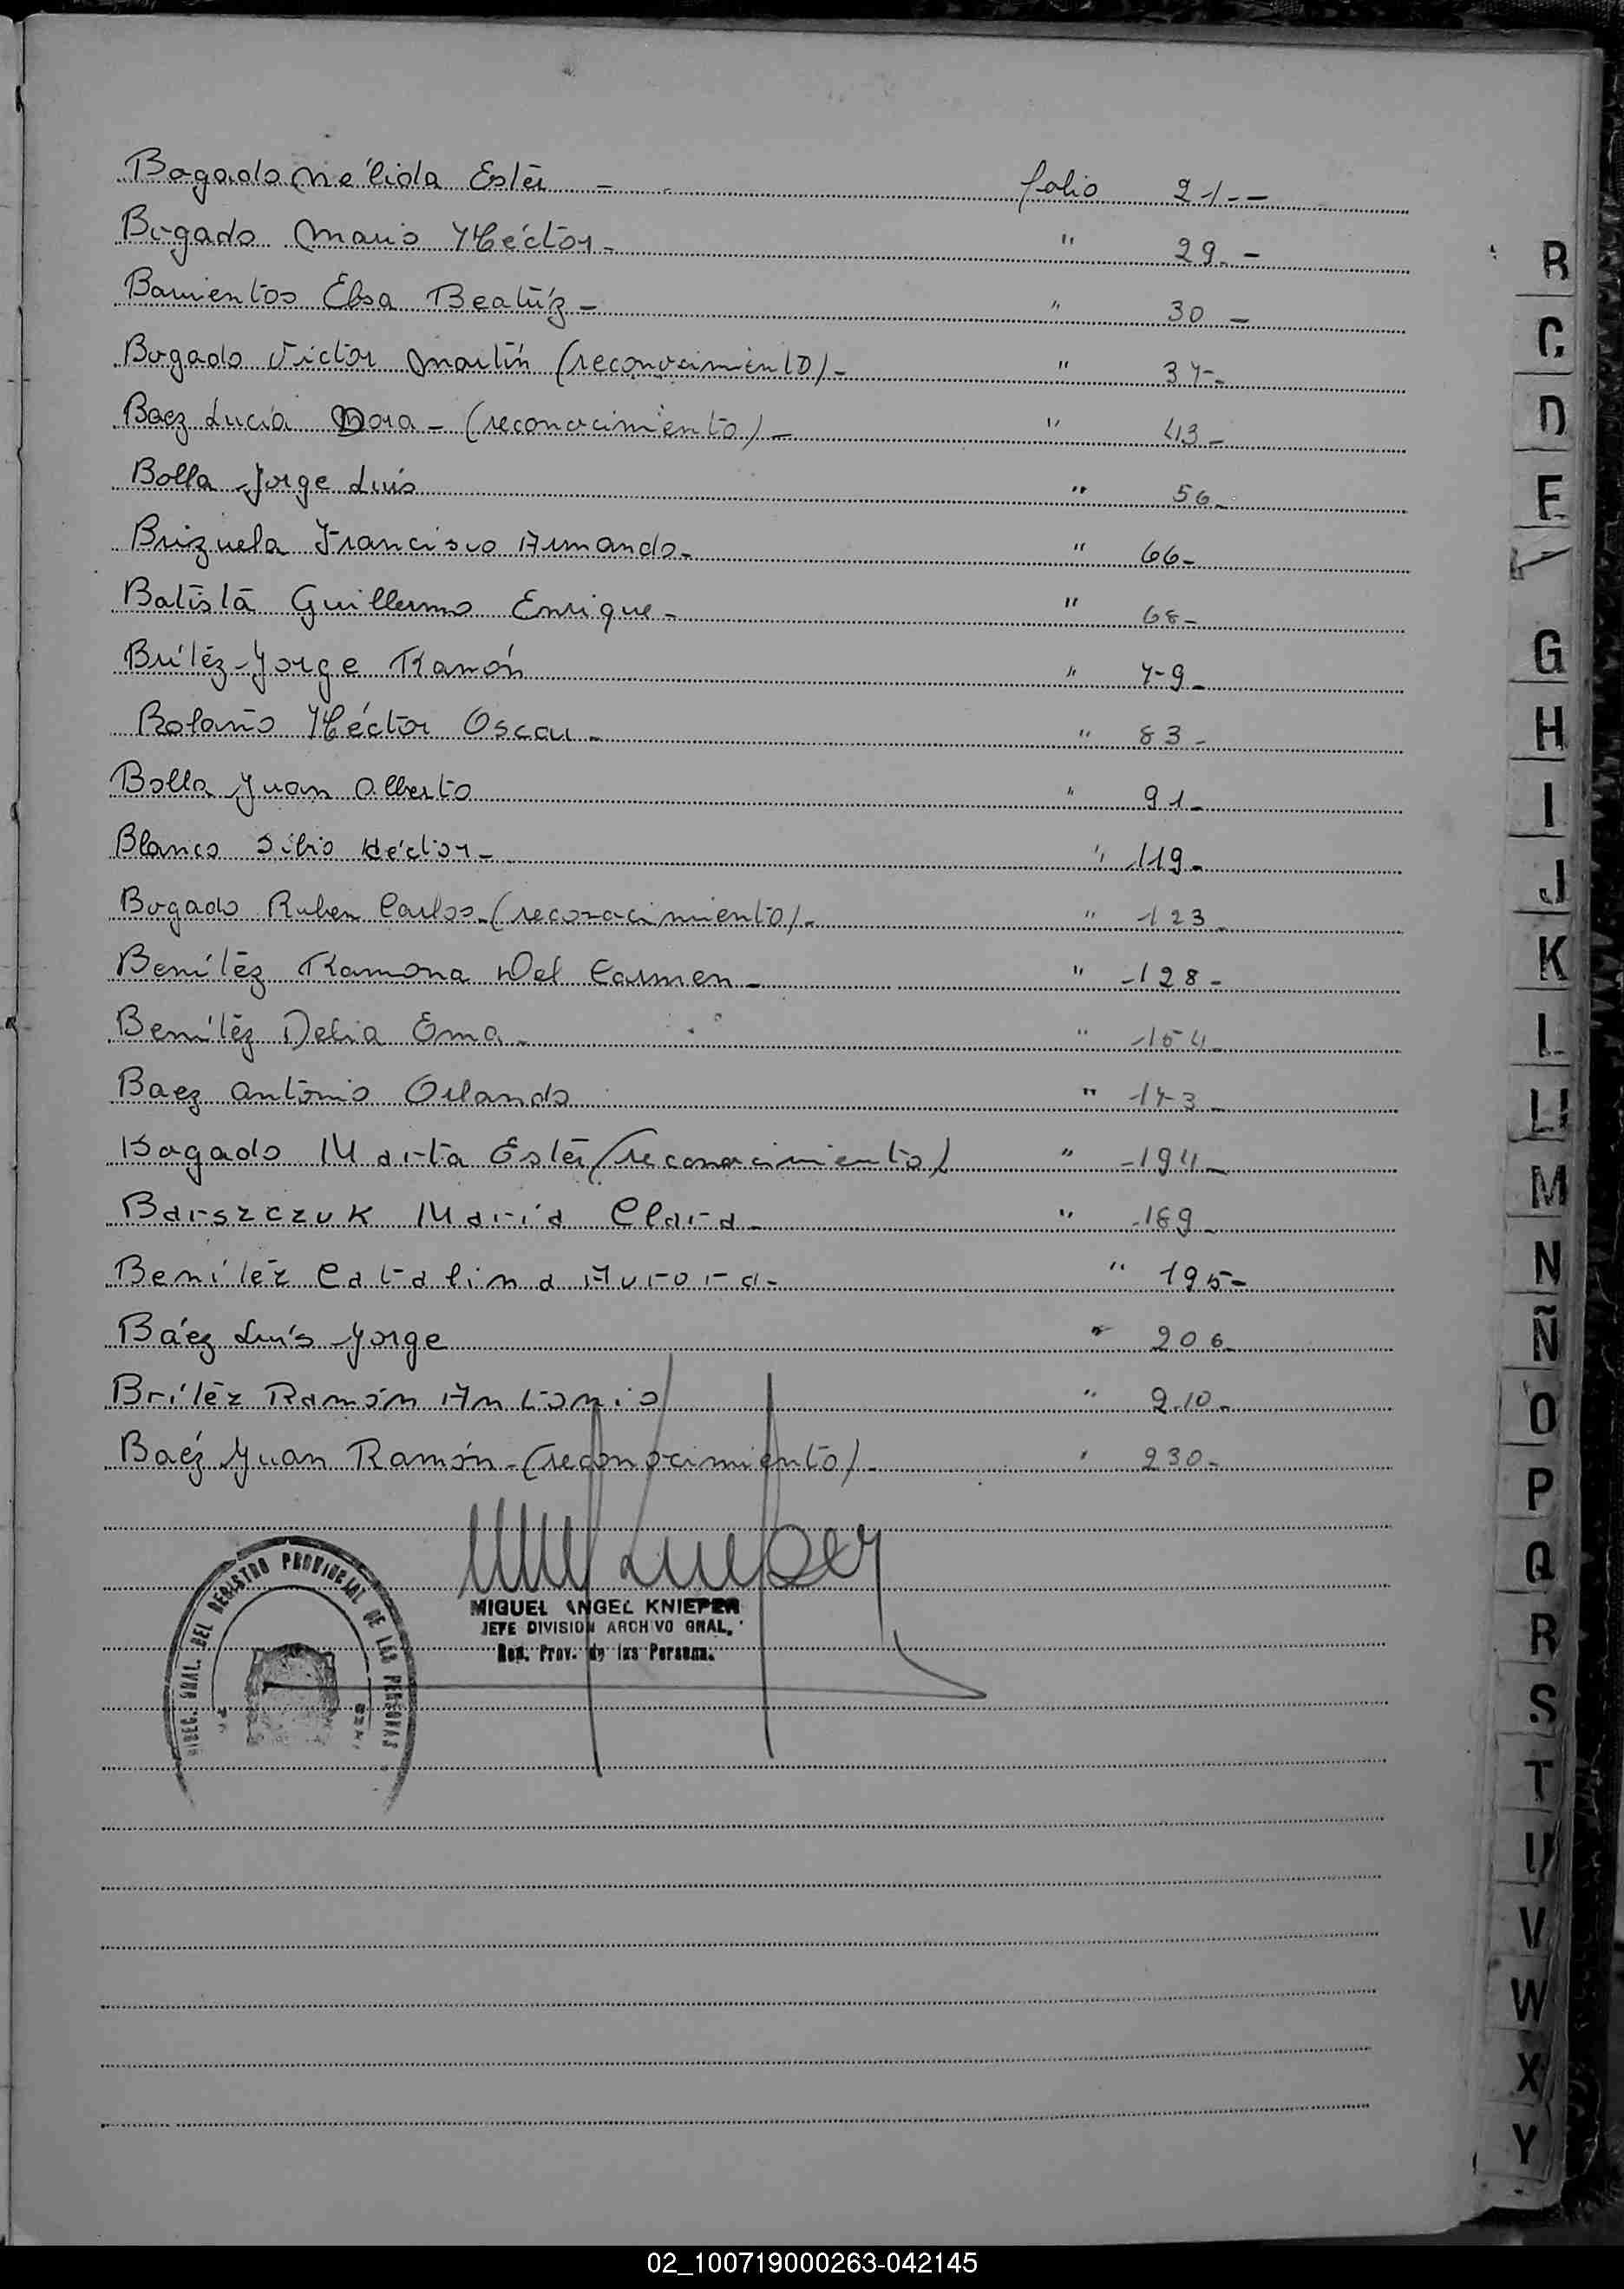 Bogado Nélida Ester - folio 21.--
Bogado Mario Héctor- " 29.-
Barrientos Elsa Beatríz- " 30-
Bogado Victor Martín (reconocimiento)- " 37-
Baez Lucía Dora- (reconocimiento)- " 43-
Bolla Jorge Luis " 56-
Brizuela Francisco Armando- " 66-
Batista Guillermo Enrique- " 68-
Brítez Jorge Ramón " 79-
Bolaño Héctor Oscar- " 83-
Bolla Juan Alberto " 91-
Blanco Silvio Héctor- " 119-
Bogado Ruben Carlos-(reconocimiento)- " 123-
Benítez Ramona Del Carmen- " 128-
Benítez Delia Ema- " 154-
Baez Antonio Orlando " 173-
Bogado Marta Ester (reconocimiento) " 194-
Barszczuk María Clara- " 189-
Benítez Catalina Aurora- " 195-
Báez Luís Jorge " 206-
Brítez Ramón Antonio " 210-
Baéz Juan Ramón-(reconocimiento)- " 230-
DIREC. GRAL. DEL REGISTRO PROVINCIAL DE LAS PERSONAS
MIGUEL ANGEL KNIEPER
JEFE DIVISION ARCHIVO GRAL.
Reg. Prov. de las Personas
B
C
D
E
G
H
I
J
K
L
LL
M
N
Ñ
O
P
Q
R
S
T
U
V
W
X
Y
02_100719000263-042145